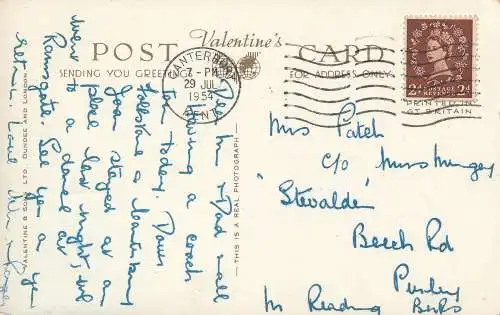 POST Valentine's CARD
SENDING YOU GREETINGS FOR ADDRESS ONLY
CANTERBURY
7 - PM
29 JUL
1954
KENT
POSTAGE REVENUE
2d 2d
PRINTED IN
GT BRITAIN
Dear Mum & Dad & all
Having a coach
tour today. Dover
Folkestone & Canterbury
Joan stayed at our
place last night, we
went to a dance at
Ramsgate. See you on
return. Love
VALENTINE & SONS LTD. DUNDEE AND LONDON
THIS IS A REAL PHOTOGRAPH
Mrs Patch
c/o Mrs Mungey
"Stevalden"
Beech Rd
Purley
Nr Reading
Berks